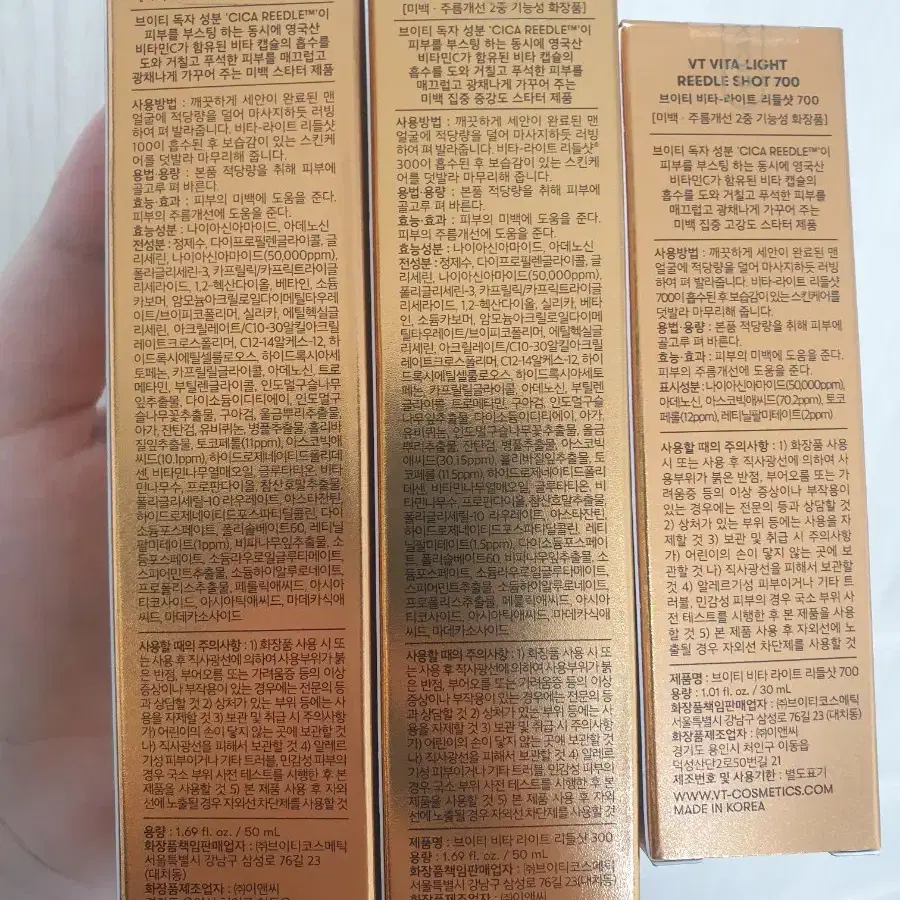 브이티 독자 성분 'CICA REEDLE™'이
피부를 부스팅 하는 동시에 영국산
비타민C가 함유된 비타 캡슐의 흡수를
도와 거칠고 푸석한 피부를 매끄럽고
광채나게 가꾸어 주는 미백 스타터 제품
사용방법 : 깨끗하게 세안이 완료된 맨
얼굴에 적당량을 덜어 마사지하듯 러빙
하여 펴 발라줍니다. 비타-라이트 리들샷
100이 흡수된 후 보습감이 있는 스킨케
어를 덧발라 마무리해 줍니다.
용법·용량 : 본품 적당량을 취해 피부에
골고루 펴 바른다.
효능·효과 : 피부의 미백에 도움을 준다.
피부의 주름개선에 도움을 준다.
효능성분 : 나이아신아마이드, 아데노신
전성분 : 정제수, 다이프로필렌글라이콜, 글
리세린, 나이아신아마이드(50,000ppm),
폴리글리세린-3, 카프릴릭/카프릭트라이글
리세라이드, 1,2-헥산다이올, 베타인, 소듐
카보머, 암모늄아크릴로일다이메틸타우레
이트/브이피코폴리머, 실리카, 에틸헥실글
리세린, 아크릴레이트/C10-30알킬아크릴
레이트크로스폴리머, C12-14알케스-12, 하
이드록시에틸셀룰로오스, 하이드록시아세
토페논, 카프릴릴글라이콜, 아데노신, 트로
메타민, 부틸렌글라이콜, 인도멀구슬나무
잎추출물, 다이소듐이디티에이, 인도멀구
슬나무꽃추출물, 구아검, 울금뿌리추출물,
아가, 잔탄검, 유비퀴논, 병풀추출물, 홀리바
질잎추출물, 토코페롤(11ppm), 아스코빅애
씨드(10.1ppm), 하이드로제네이티드폴리데
센, 비타민나무열매오일, 글루타티온, 비타
민나무수, 프로판다이올, 참산호말추출물,
폴리글리세릴-10 라우레이트, 아스타잔틴,
하이드로제네이티드포스파티딜콜린, 다이
소듐포스페이트, 폴리솔베이트60, 레티닐
팔미테이트(1ppm), 비파나무잎추출물, 소
듐포스페이트, 소듐라우로일글루타메이트,
스피어민트추출물, 소듐하이알루로네이트,
프로폴리스추출물, 페룰릭애씨드, 아시아
티코사이드, 아시아틱애씨드, 마데카식애
씨드, 마데카소사이드
사용할 때의 주의사항 : 1) 화장품 사용 시 또
는 사용 후 직사광선에 의하여 사용부위가 붉
은 반점, 부어오름 또는 가려움증 등의 이상
증상이나 부작용이 있는 경우에는 전문의 등
과 상담할 것 2) 상처가 있는 부위 등에는 사
용을 자제할 것 3) 보관 및 취급 시 주의사항
가) 어린이의 손이 닿지 않는 곳에 보관할 것
나) 직사광선을 피해서 보관할 것 4) 알레르
기성 피부이거나 기타 트러블, 민감성 피부의
경우 국소 부위 사전 테스트를 시행한 후 본
제품을 사용할 것 5) 본 제품 사용 후 자외
선에 노출될 경우 자외선 차단제를 사용할 것
용량 : 1.69 fl. oz. / 50 mL
화장품책임판매업자 : ㈜브이티코스메틱
서울특별시 강남구 삼성로 76길 23
(대치동)
화장품제조업자 : ㈜이앤씨
[미백 · 주름개선 2중 기능성 화장품]
브이티 독자 성분 'CICA REEDLE™'이
피부를 부스팅 하는 동시에 영국산
비타민C가 함유된 비타 캡슐의
흡수를 도와 거칠고 푸석한 피부를
매끄럽고 광채나게 가꾸어 주는
미백 집중 중강도 스타터 제품
사용방법 : 깨끗하게 세안이 완료된 맨
얼굴에 적당량을 덜어 마사지하듯 러빙
하여 펴 발라줍니다. 비타-라이트 리들샷
300이 흡수된 후 보습감이 있는 스킨케
어를 덧발라 마무리해 줍니다.
용법·용량 : 본품 적당량을 취해 피부에
골고루 펴 바른다.
효능·효과 : 피부의 미백에 도움을 준다.
피부의 주름개선에 도움을 준다.
효능성분 : 나이아신아마이드, 아데노신
전성분 : 정제수, 다이프로필렌글라이콜, 글
리세린, 나이아신아마이드(50,000ppm),
폴리글리세린-3 카프릴릭/카프릭트라이글
리세라이드, 1,2-헥산다이올, 실리카, 베타
인, 소듐카보머, 암모늄아크릴로일다이메
틸타우레이트/브이피코폴리머, 에틸헥실글
리세린, 아크릴레이트/C10-30알킬아크릴
레이트크로스폴리머, C12-14알케스-12, 하이
드록시에틸셀룰로오스, 하이드록시아세토
페논, 카프릴릴글라이콜, 아데노신, 부틸렌
글라이콜, 트로메타민, 구아검, 인도멀구슬
나무잎추출물, 다이소듐이디티에이, 아가,
유비퀴논, 인도멀구슬나무꽃추출물, 울금
뿌리추출물, 잔탄검, 병풀추출물, 아스코빅
애씨드(30.15ppm), 홀리바질잎추출물, 토
코페롤(11.5ppm), 하이드로제네이티드폴리
데센, 비타민나무열매오일, 글루타티온, 비
타민나무수, 프로판다이올, 참산호말추출물,
폴리글리세릴-10라우레이트, 아스타잔틴,
하이드로제네이티드포스파티딜콜린, 레티
닐팔미테이트(1.5ppm), 다이소듐포스페이
트, 폴리솔베이트60, 비파나무잎추출물, 소
듐포스페이트, 소듐라우로일글루타메이트,
스피어민트추출물, 소듐하이알루로네이트,
프로폴리스추출물, 페룰릭애씨드, 아시아
티코사이드, 아시아틱애씨드, 마데카식애
씨드, 마데카소사이드
사용할 때의 주의사항 : 1) 화장품 사용 시 또
는 사용 후 직사광선에 의하여 사용부위가 붉
은 반점, 부어오름 또는 가려움증 등의 이상
증상이나 부작용이 있는 경우에는 전문의 등
과 상담할 것 2) 상처가 있는 부위 등에는 사
용을 자제할 것 3) 보관 및 취급 시 주의사항
가) 어린이의 손이 닿지 않는 곳에 보관할 것
나) 직사광선을 피해서 보관할 것 4) 알레르
기성 피부이거나 기타 트러블, 민감성 피부의
경우 국소 부위 사전 테스트를 시행한 후 본
제품을 사용할 것 5) 본 제품 사용 후 자외
선에 노출될 경우 자외선 차단제를 사용할 것
제품명 : 브이티 비타 라이트 리들샷 300
용량 : 1.69 fl. oz. / 50 mL
화장품책임판매업자 : ㈜브이티코스메틱
서울특별시 강남구 삼성로 76길 23(대치동)
화장품제조업자 : ㈜이앤씨
VT VITA-LIGHT
REEDLE SHOT 700
브이티 비타-라이트 리들샷 700
[미백 · 주름개선 2중 기능성 화장품]
브이티 독자 성분 'CICA REEDLE™'이
피부를 부스팅 하는 동시에 영국산
비타민C가 함유된 비타 캡슐의
흡수를 도와 거칠고 푸석한 피부를
매끄럽고 광채나게 가꾸어 주는
미백 집중 고강도 스타터 제품
사용방법 : 깨끗하게 세안이 완료된 맨
얼굴에 적당량을 덜어 마사지하듯 러빙
하여 펴 발라줍니다. 비타-라이트 리들샷
700이 흡수된 후 보습감이 있는 스킨케어를
덧발라 마무리해 줍니다.
용법·용량 : 본품 적당량을 취해 피부에
골고루 펴 바른다.
효능·효과 : 피부의 미백에 도움을 준다.
피부의 주름개선에 도움을 준다.
표시성분 : 나이아신아마이드(50,000ppm),
아데노신, 아스코빅애씨드(70.2ppm), 토코
페롤(12ppm), 레티닐팔미테이트(2ppm)
사용할 때의 주의사항 : 1) 화장품 사용
시 또는 사용 후 직사광선에 의하여 사
용부위가 붉은 반점, 부어오름 또는 가
려움증 등의 이상 증상이나 부작용이
있는 경우에는 전문의 등과 상담할 것
2) 상처가 있는 부위 등에는 사용을 자
제할 것 3) 보관 및 취급 시 주의사항
가) 어린이의 손이 닿지 않는 곳에 보
관할 것 나) 직사광선을 피해서 보관할
것 4) 알레르기성 피부이거나 기타 트
러블, 민감성 피부의 경우 국소 부위 사
전 테스트를 시행한 후 본 제품을 사용
할 것 5) 본 제품 사용 후 자외선에 노
출될 경우 자외선 차단제를 사용할 것
제품명 : 브이티 비타 라이트 리들샷 700
용량 : 1.01 fl. oz. / 30 mL
화장품책임판매업자 : ㈜브이티코스메틱
서울특별시 강남구 삼성로 76길 23 (대치동)
화장품제조업자 : ㈜이앤씨
경기도 용인시 처인구 이동읍
덕성산단2로50번길 21
제조번호 및 사용기한 : 별도표기
WWW.VT-COSMETICS.COM
MADE IN KOREA